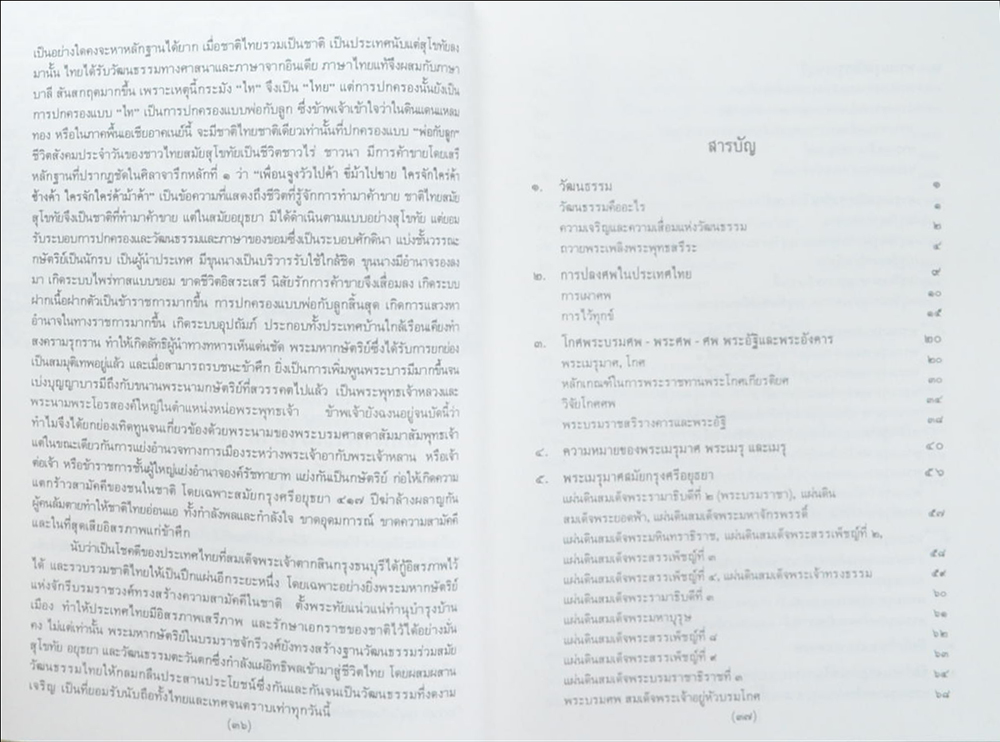 เป็นอย่างใดคงจะหาหลักฐานได้ยาก เมื่อชาติไทยรวมเป็นชาติ เป็นประเทศนับแต่สุโขทัยลง
มานั้น ไทยได้รับวัฒนธรรมทางศาสนาและภาษาจากอินเดีย ภาษาไทยแท้จึงผสมกับภาษา
บาลี สันสกฤตมากขึ้น เพราะเหตุนี้กระมัง "ไท" จึงเป็น "ไทย" แต่การปกครองนั้นยังเป็น
การปกครองแบบ "ไท" เป็นการปกครองแบบพ่อกับลูก ซึ่งข้าพเจ้าเข้าใจว่าในดินแดนแหลม
ทอง หรือในภาคพื้นเอเชียอาคเนย์นี้ จะมีชาติไทยชาติเดียวเท่านั้นที่ปกครองแบบ "พ่อกับลูก"
ชีวิตสังคมประจำวันของชาวไทยสมัยสุโขทัยเป็นชีวิตชาวไร่ ชาวนา มีการค้าขายโดยเสรี
หลักฐานที่ปรากฏชัดในศิลาจารึกหลักที่ ๑ ว่า "เพื่อนจูงวัวไปค้า ขี่ม้าไปขาย ใครจักใคร่ค้า
ช้างค้า ใครจักใคร่ค้าม้าค้า" เป็นข้อความที่แสดงถึงชีวิตที่รู้จักการทำมาค้าขาย ชาติไทยสมัย
สุโขทัยจึงเป็นชาติที่ทำมาค้าขาย แต่ในสมัยอยุธยา มิได้ดำเนินตามแบบอย่างสุโขทัย แต่ยอม
รับระบอบการปกครองและวัฒนธรรมและภาษาของขอมซึ่งเป็นระบอบศักดินา แบ่งชั้นวรรณะ
กษัตริย์เป็นนักรบ เป็นผู้นำประเทศ มีขุนนางเป็นบริวารรับใช้ใกล้ชิด ขุนนางมีอำนาจรองลง
มา เกิดระบบไพร่ทาสแบบขอม ขาดชีวิตอิสระเสรี นิสัยรักการค้าขายจึงเสื่อมลง เกิดระบบ
ฝากเนื้อฝากตัวเป็นข้าราชการมากขึ้น การปกครองแบบพ่อกับลูกสิ้นสุด เกิดการแสวงหา
อำนาจในทางราชการมากขึ้น เกิดระบบอุปถัมภ์ ประกอบทั้งประเทศบ้านใกล้เรือนเคียงทำ
สงครามรุกราน ทำให้เกิดลัทธิผู้นำทางทหารเห็นเด่นชัด พระมหากษัตริย์ซึ่งได้รับการยกย่อง
เป็นสมมุติเทพอยู่แล้ว และเมื่อสามารถรบชนะข้าศึก ยิ่งเป็นการเพิ่มพูนพระบารมีมากขึ้นจน
เบ่งบุญญาบารมีถึงกับขนานพระนามกษัตริย์ที่สวรรคตไปแล้ว เป็นพระพุทธเจ้าหลวงและ
พระนามพระโอรสองค์ใหญ่ในตำแหน่งหน่อพระพุทธเจ้า ข้าพเจ้ายังฉงนอยู่จนบัดนี้ว่า
ทำไมจึงได้ยกย่องเทิดทูนจนเกี่ยวข้องด้วยพระนามของพระบรมศาสดาสัมมาสัมพุทธเจ้า
แต่ในขณะเดียวกันการแย่งอำนาจทางการเมืองระหว่างพระเจ้าอากับพระเจ้าหลาน หรือเจ้า
ต่อเจ้า หรือข้าราชการชั้นผู้ใหญ่แย่งอำนาจองค์รัชทายาท แย่งกันเป็นกษัตริย์ ก่อเกิดความ
แตกร้าวสามัคคีของชนในชาติ โดยเฉพาะสมัยกรุงศรีอยุธยา ๔๑๗ ปีฆ่าล้างผลาญกัน
ผู้คนล้มตายทำให้ไทยอ่อนแอ ทั้งกำลังพลและกำลังใจ ขาดอุดมการณ์ ขาดความสามัคคี
และในที่สุดเสียอิสรภาพแก่ข้าศึก
นับว่าเป็นโชคดีของประเทศไทยที่สมเด็จพระเจ้าตากสินกรุงธนบุรีได้กู้อิสรภาพไว้
ได้ และรวบรวมชาติไทยให้เป็นปึกแผ่นอีกระยะหนึ่ง โดยเฉพาะอย่างยิ่งพระมหากษัตริย์
แห่งจักรีบรมราชวงศ์ทรงสร้างความสามัคคีในชาติ ตั้งพระทัยแน่วแน่ทำนุบำรุงบ้าน
เมือง ทำให้ประเทศไทยมีอิสรภาพเสรีภาพ และรักษาเอกราชของชาติไว้ได้อย่างมั่น
คง ไม่แต่เท่านั้น พระมหากษัตริย์ในบรมราชจักรีวงศ์ยังทรงสร้างฐานวัฒนธรรมร่วมสมัย
สุโขทัย อยุธยา และวัฒนธรรมตะวันตกซึ่งกำลังแผ่อิทธิพลเข้ามาสู่ชีวิตไทย โดยผสมผสาน
วัฒนธรรมไทยให้กลมกลืนประสานประโยชน์ซึ่งกันและกันจนเป็นวัฒนธรรมที่งดงาม
เจริญ เป็นที่ยอมรับนับถือทั้งไทยและเทศจนตราบเท่าทุกวันนี้
(๓๖)
สารบัญ
๑. วัฒนธรรม ๑
วัฒนธรรมคืออะไร ๑
ความเจริญและความเสื่อมแห่งวัฒนธรรม ๒
ถวายพระเพลิงพระพุทธสรีระ ๔
๒. การปลงศพในประเทศไทย ๙
การเผาศพ ๑๐
การไว้ทุกข์ ๑๕
๓. โกศพระบรมศพ - พระศพ - ศพ พระอัฐิและพระอังคาร ๒๐
พระเมรุมาศ, โกศ ๒๐
หลักเกณฑ์ในการพระราชทานพระโกศเกียรติยศ ๓๐
วิจัยโกศศพ ๓๔
พระบรมราชสรีรางคารและพระอัฐิ ๓๘
๔. ความหมายของพระเมรุมาศ พระเมรุ และเมรุ ๔๐
๕. พระเมรุมาศสมัยกรุงศรีอยุธยา ๕๖
แผ่นดินสมเด็จพระรามาธิบดีที่ ๒ (พระบรมราชา), แผ่นดิน
สมเด็จพระยอดฟ้า, แผ่นดินสมเด็จพระมหาจักรพรรดิ์ ๕๗
แผ่นดินสมเด็จพระมหินทราธิราช, แผ่นดินสมเด็จพระสรรเพ็ชญ์ที่ ๒,
แผ่นดินสมเด็จพระสรรเพ็ชญ์ที่ ๓ ๕๘
แผ่นดินสมเด็จพระสรรเพ็ชญ์ที่ ๔, แผ่นดินสมเด็จพระเจ้าทรงธรรม ๕๙
แผ่นดินสมเด็จพระรามาธิบดีที่ ๓ ๖๐
แผ่นดินสมเด็จพระมหาบุรุษ ๖๑
แผ่นดินสมเด็จพระสรรเพ็ชญ์ที่ ๘ ๖๒
แผ่นดินสมเด็จพระสรรเพ็ชญ์ที่ ๙ ๖๓
แผ่นดินสมเด็จพระบรมราชาธิราชที่ ๓ ๖๕
พระบรมศพ สมเด็จพระเจ้าอยู่หัวบรมโกศ ๖๘
(๓๗)